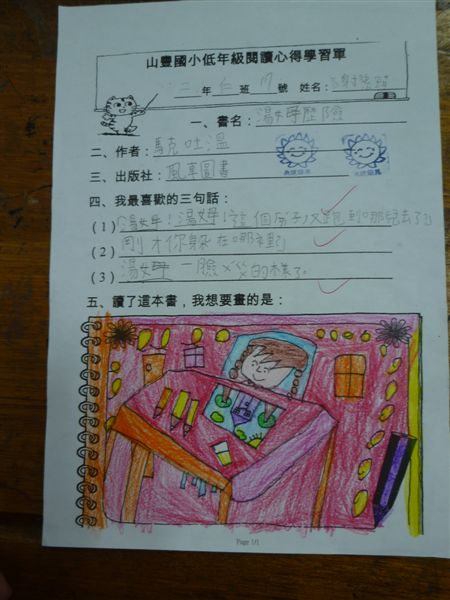 山豐國小低年級閱讀心得學習單
二年仁班 號 姓名：
一、書名：湯姆歷險
二、作者：馬克吐溫
三、出版社：風車圖書
四、我最喜歡的三句話：
(1)湯姆！湯姆！這個孩子又跑到哪兒去了？
(2)剛才你躲在哪裡
(3)湯姆一臉 的樣子。
五、讀了這本書，我想要畫的是：
Page 1/1